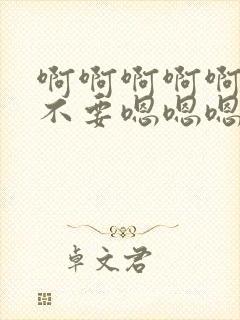 啊啊啊啊啊
不要嗯嗯嗯
卓文君